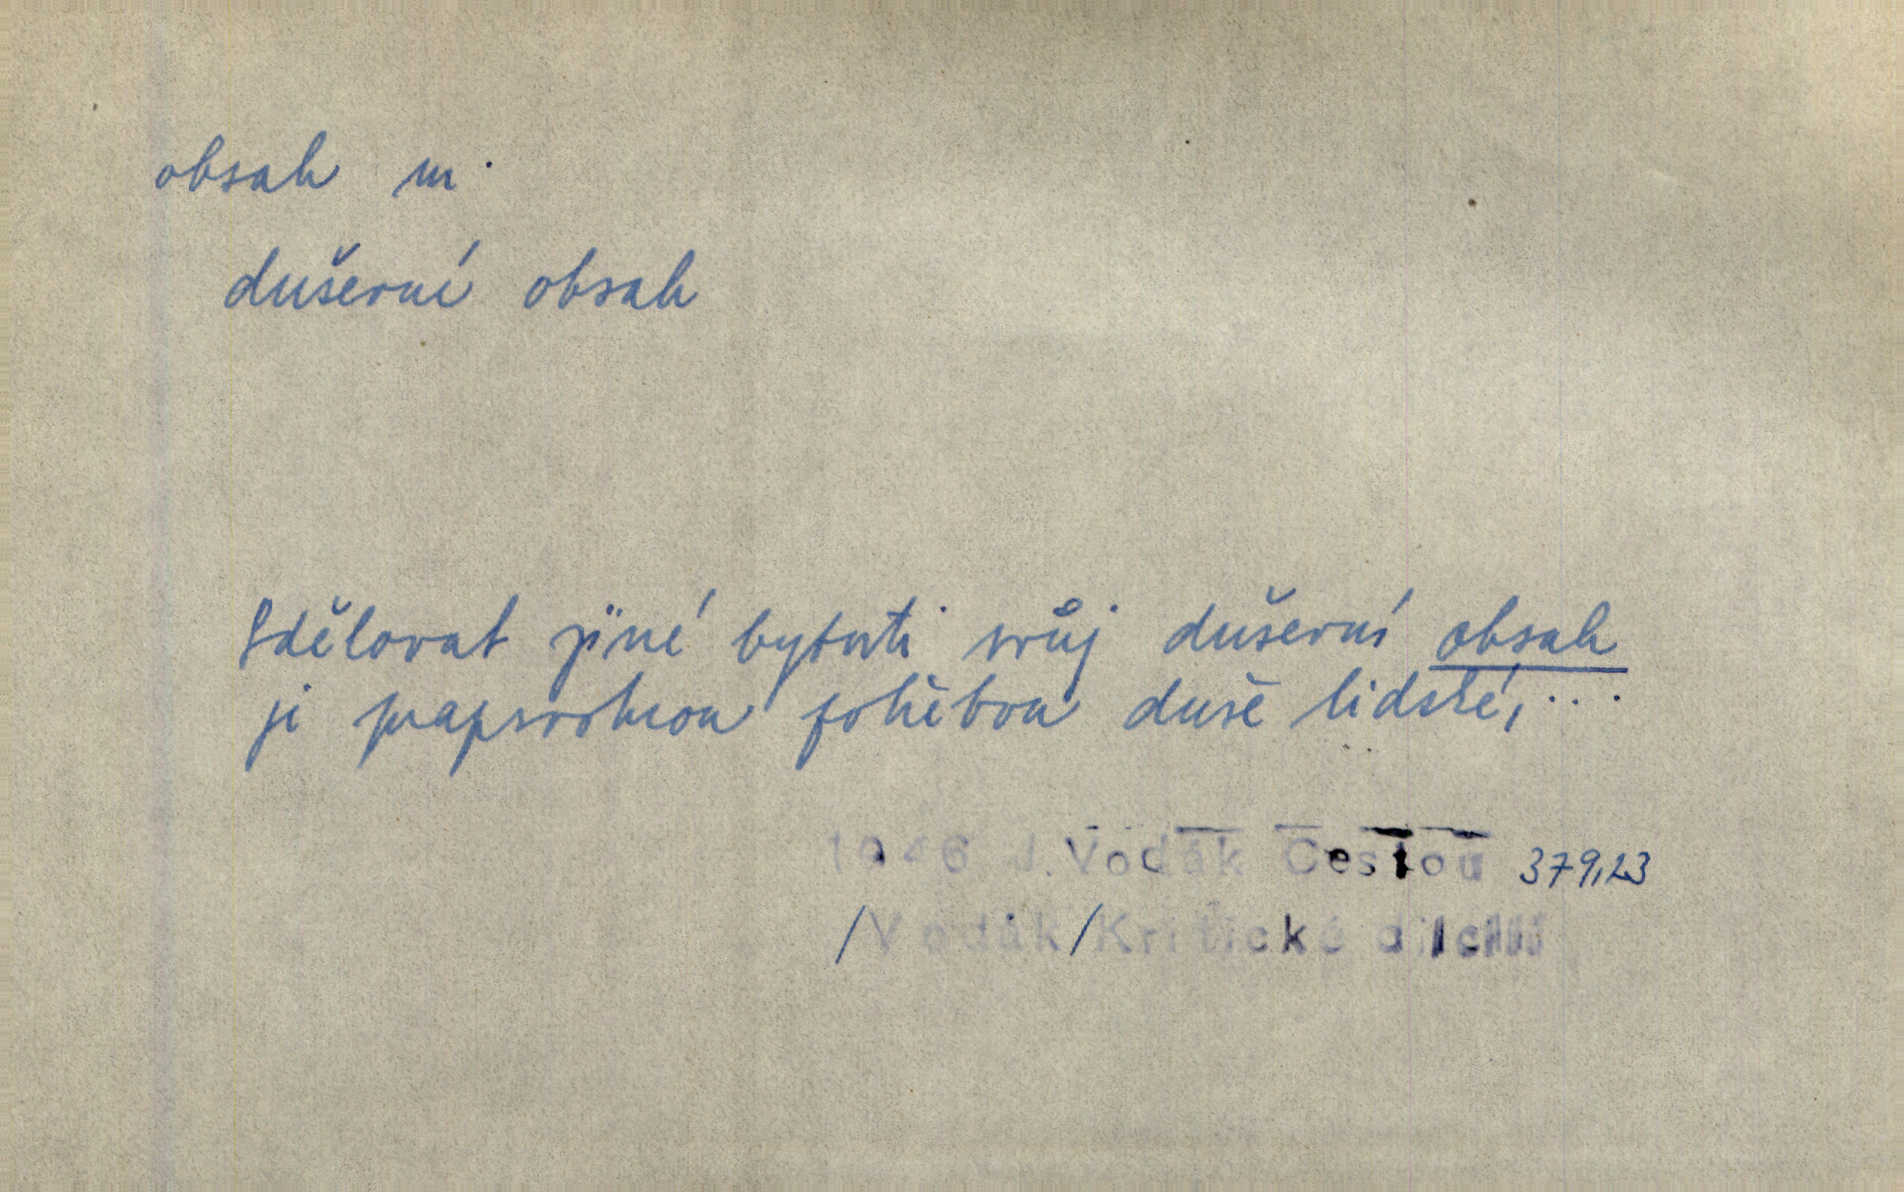 obsah m.
duševní obsah
Sdělovat jiné bytosti svůj duševní obsah
je prapůvodnou potřebou duše lidské, ...
1946 J. Vodák Cestou 379,23
/Vodák/ Kritické